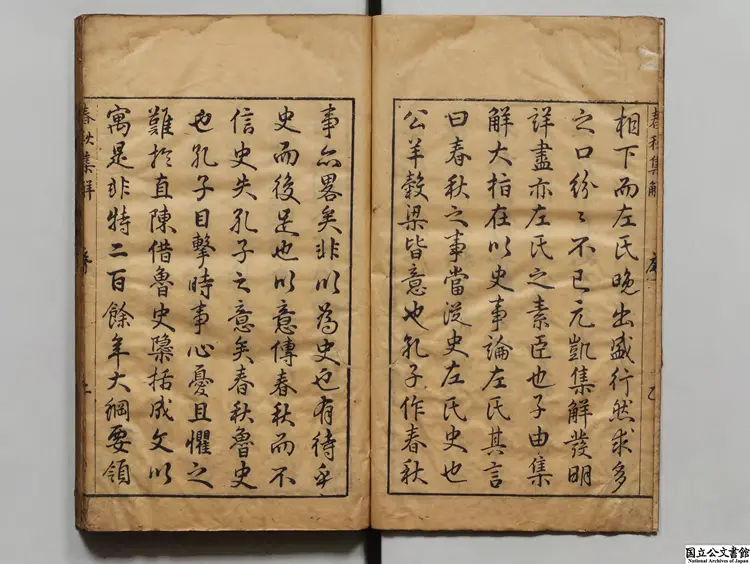 春秋集解
序
相下而左氏晚出盛行然求多
之口紛〻不已元凱集解發明
詳盡亦左氏之素臣也子由集
解大指在以史事論左氏其言
曰春秋之事當從史左氏史也
公羊穀梁皆意也孔子作春秋
事亦畧矣非以為史也有待乎
史而後足也以意傳春秋而不
信史失孔子之意矣春秋魯史
也孔子目擊時事心憂且懼之
難於直陳借魯史檃括成文以
寓是非特二百餘年大綱要領
春秋集解
序
国立公文書館
National Archives of Japan